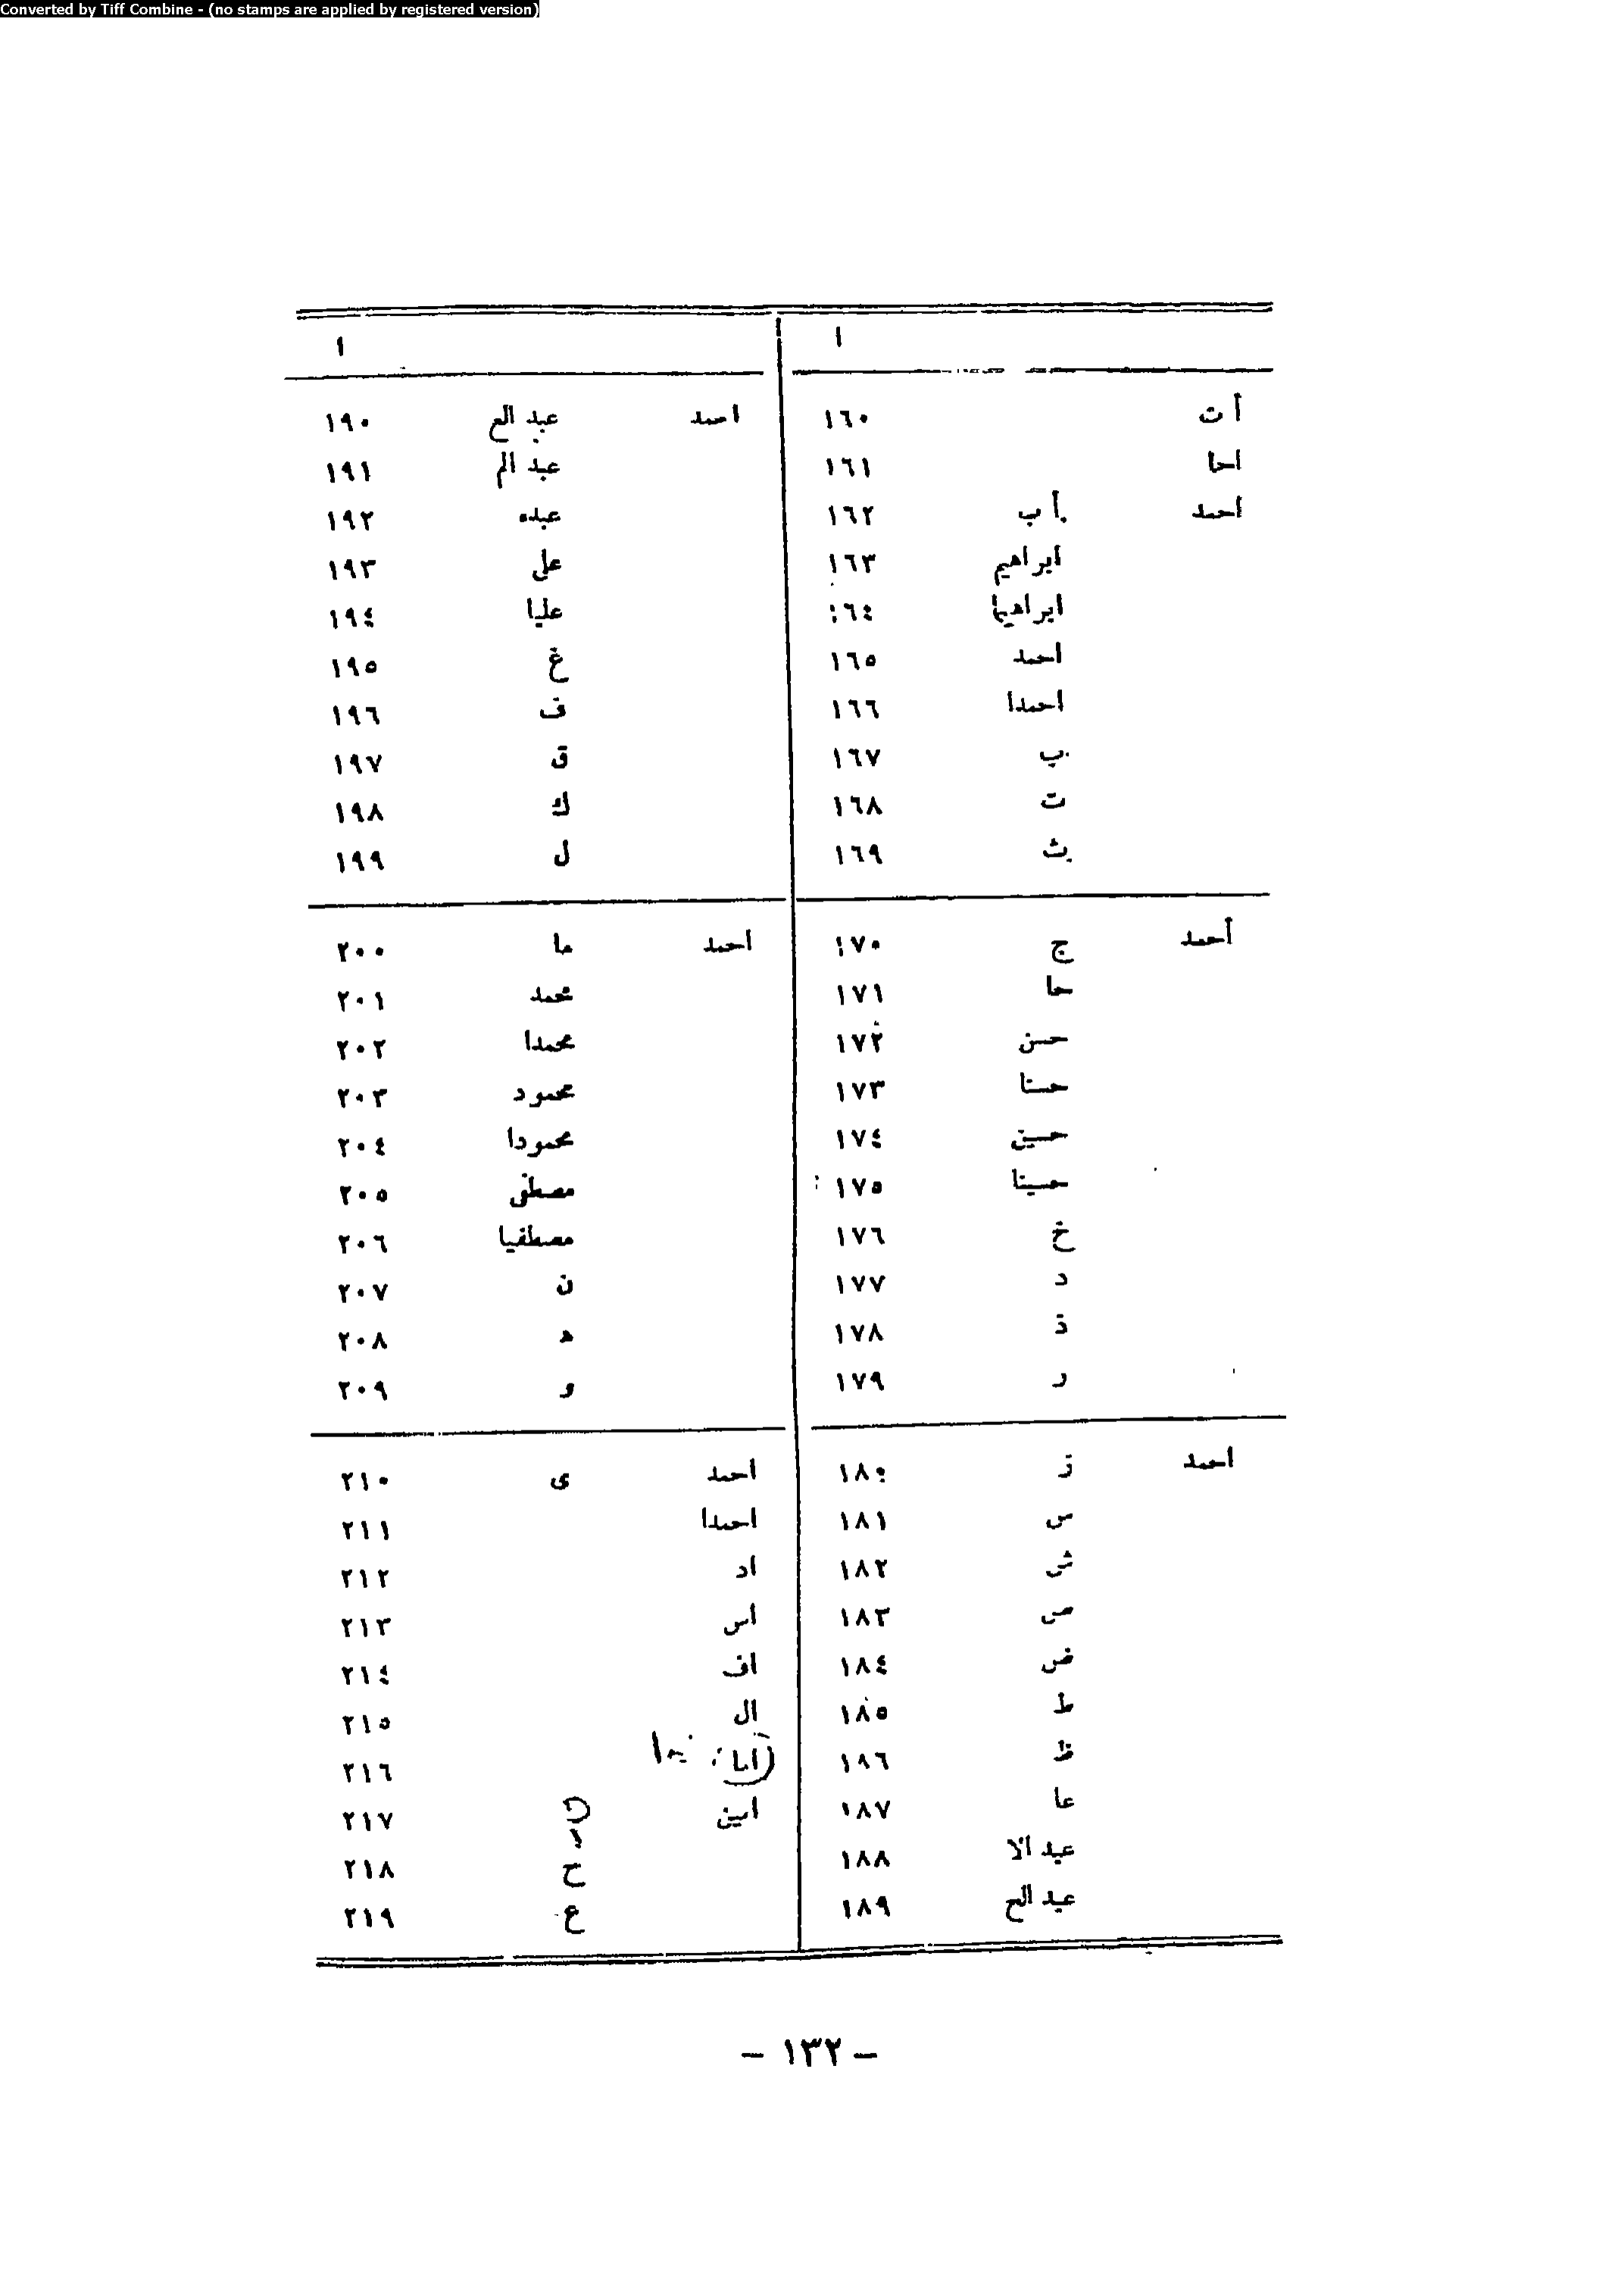 Converted by Tiff Combine - (no stamps are applied by registered version)
ا
أ ت ١٦٠
احا ١٦١
احمد أ ب ١٦٢
ابراهيم ١٦٣
ابراهيما ١٦٤
احمد ١٦٥
احمدا ١٦٦
ب ١٦٧
ت ١٦٨
ث ١٦٩
أحمد ج ١٧٠
حا ١٧١
حسن ١٧٢
حسنا ١٧٣
حسين ١٧٤
حسينا ١٧٥
خ ١٧٦
د ١٧٧
ذ ١٧٨
ر ١٧٩
احمد ز ١٨٠
س ١٨١
ش ١٨٢
ص ١٨٣
ض ١٨٤
ط ١٨٥
ظ ١٨٦
عا ١٨٧
عبد الا ١٨٨
عبد الح ١٨٩
ا
احمد عبد الع ١٩٠
عبد الم ١٩١
عبده ١٩٢
على ١٩٣
عليا ١٩٤
غ ١٩٥
ف ١٩٦
ق ١٩٧
ك ١٩٨
ل ١٩٩
احمد ما ٢٠٠
محمد ٢٠١
محمدا ٢٠٢
محمود ٢٠٣
محمودا ٢٠٤
مصطفى ٢٠٥
مصطفيا ٢٠٦
ن ٢٠٧
ه ٢٠٨
و ٢٠٩
احمد ى ٢١٠
احمدا ٢١١
اد ٢١٢
اس ٢١٣
اف ٢١٤
ال ٢١٥
٢١٦
امين ٢١٧
ح ٢١٨
ع ٢١٩
- ١٣٢ -